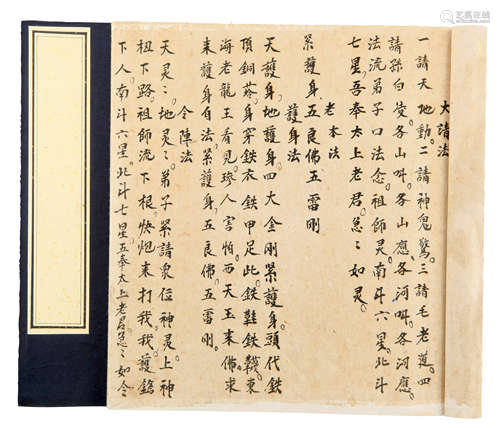 大請法
一請天地動。二請神鬼驚。三請毛老道。四
請孫白叟。各山叫。各山應。各河叫。各河應。
法流弟子口法念。祖師灵。南斗六星。北斗
七星。吾奉太上老君。急〻如灵。
老本法
紧護身。五良佛。五雷剛
護身法
天護身。地護身。四大金剛紧護身。頭代鉄
頂銅 身穿鉄衣鉄甲足此。鉄鞋鉄襪。東
海老龍王看見珍人害怕。西天玉来佛。求
来護身自法。紧護身。五良佛。五雷剛。
令陣法
天灵〻。地灵〻。弟子紧請衆位神灵。上神
祖下路。祖師流下根。快炮来打我。我護鎗
下人。南斗六星。北斗七星。五奉太上老君。急〻如令